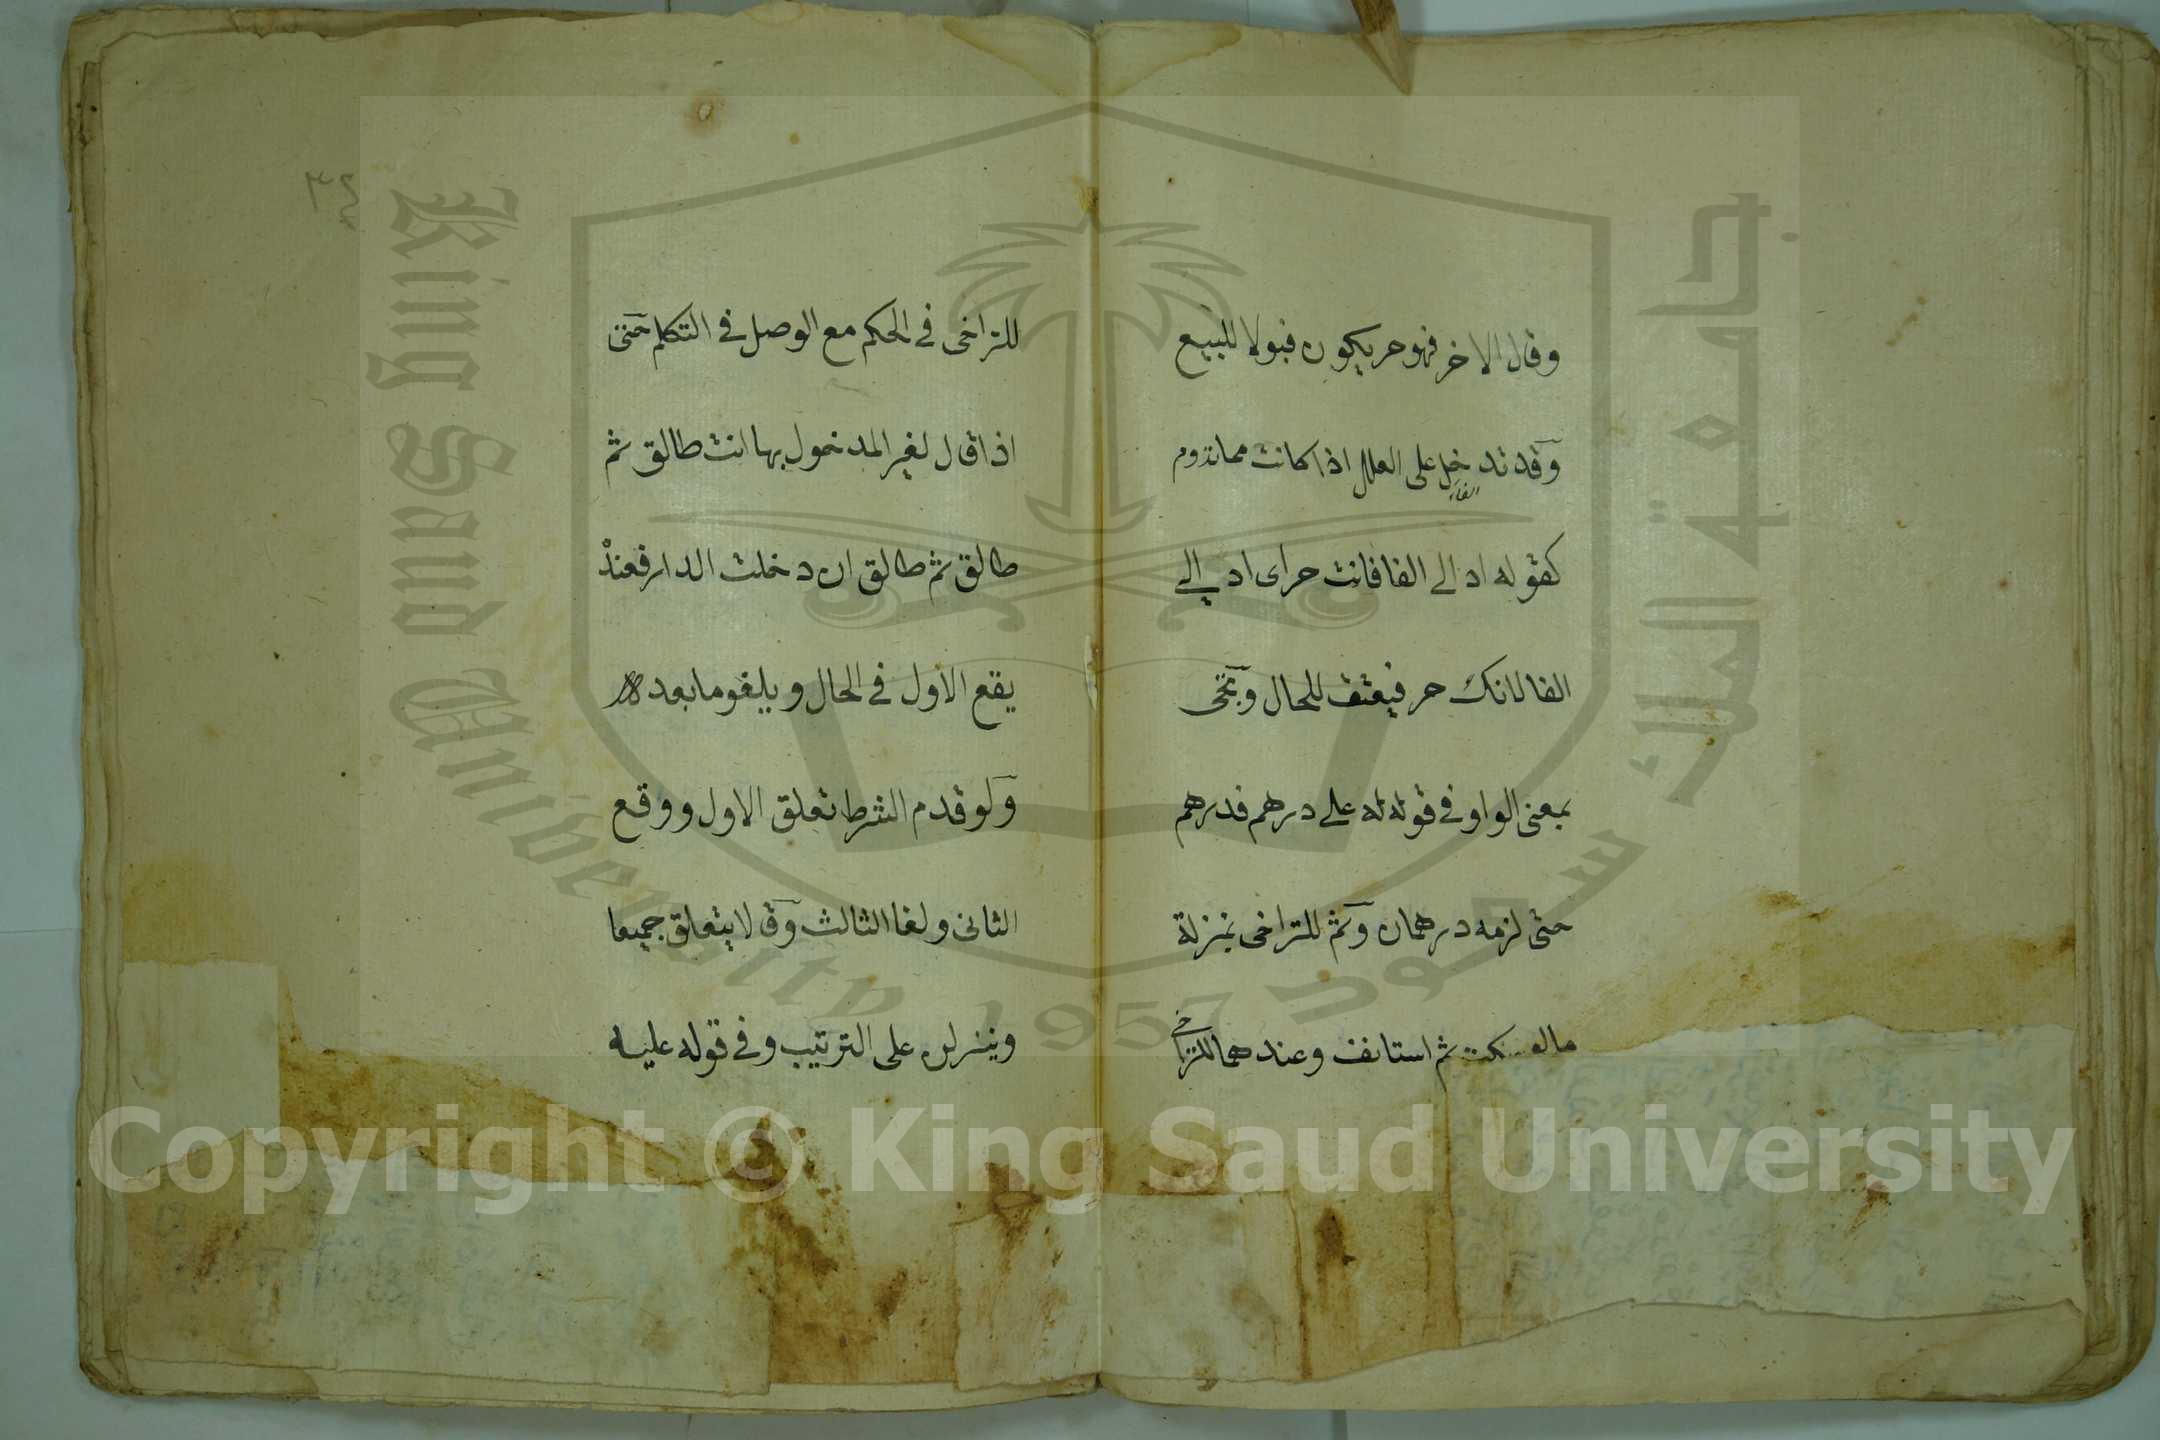 وقال الاخر فهو حر يكون قبولا للبيع
وقد تدخل على العلل اذا كانت مما تدوم
الفاء
كقوله اد الي الفا فانت حر اى اد الي
الفا لانك حر فيعتق للحال وتجئ
بمعنى الواو في قوله له علي درهم فدرهم
حتى لزمه درهمان وثم للتراخى بمنزلة
مالو سكت ثم استانف وعندهما للتراخي
٣٤
للتراخى في الحكم مع الوصل في التكلم حتى
اذا قال لغير المدخول بها انت طالق ثم
طالق ثم طالق ان دخلت الدار فعنده
يقع الاول في الحال ويلغو ما بعده
ولو قدم الشرط تعلق الاول ووقع
الثانى ولغا الثالث وقالا يتعلق جميعا
وينزلن على الترتيب وفي قوله عليه
King Saud University
جامعة الملك سعود
1957
Copyright © King Saud University